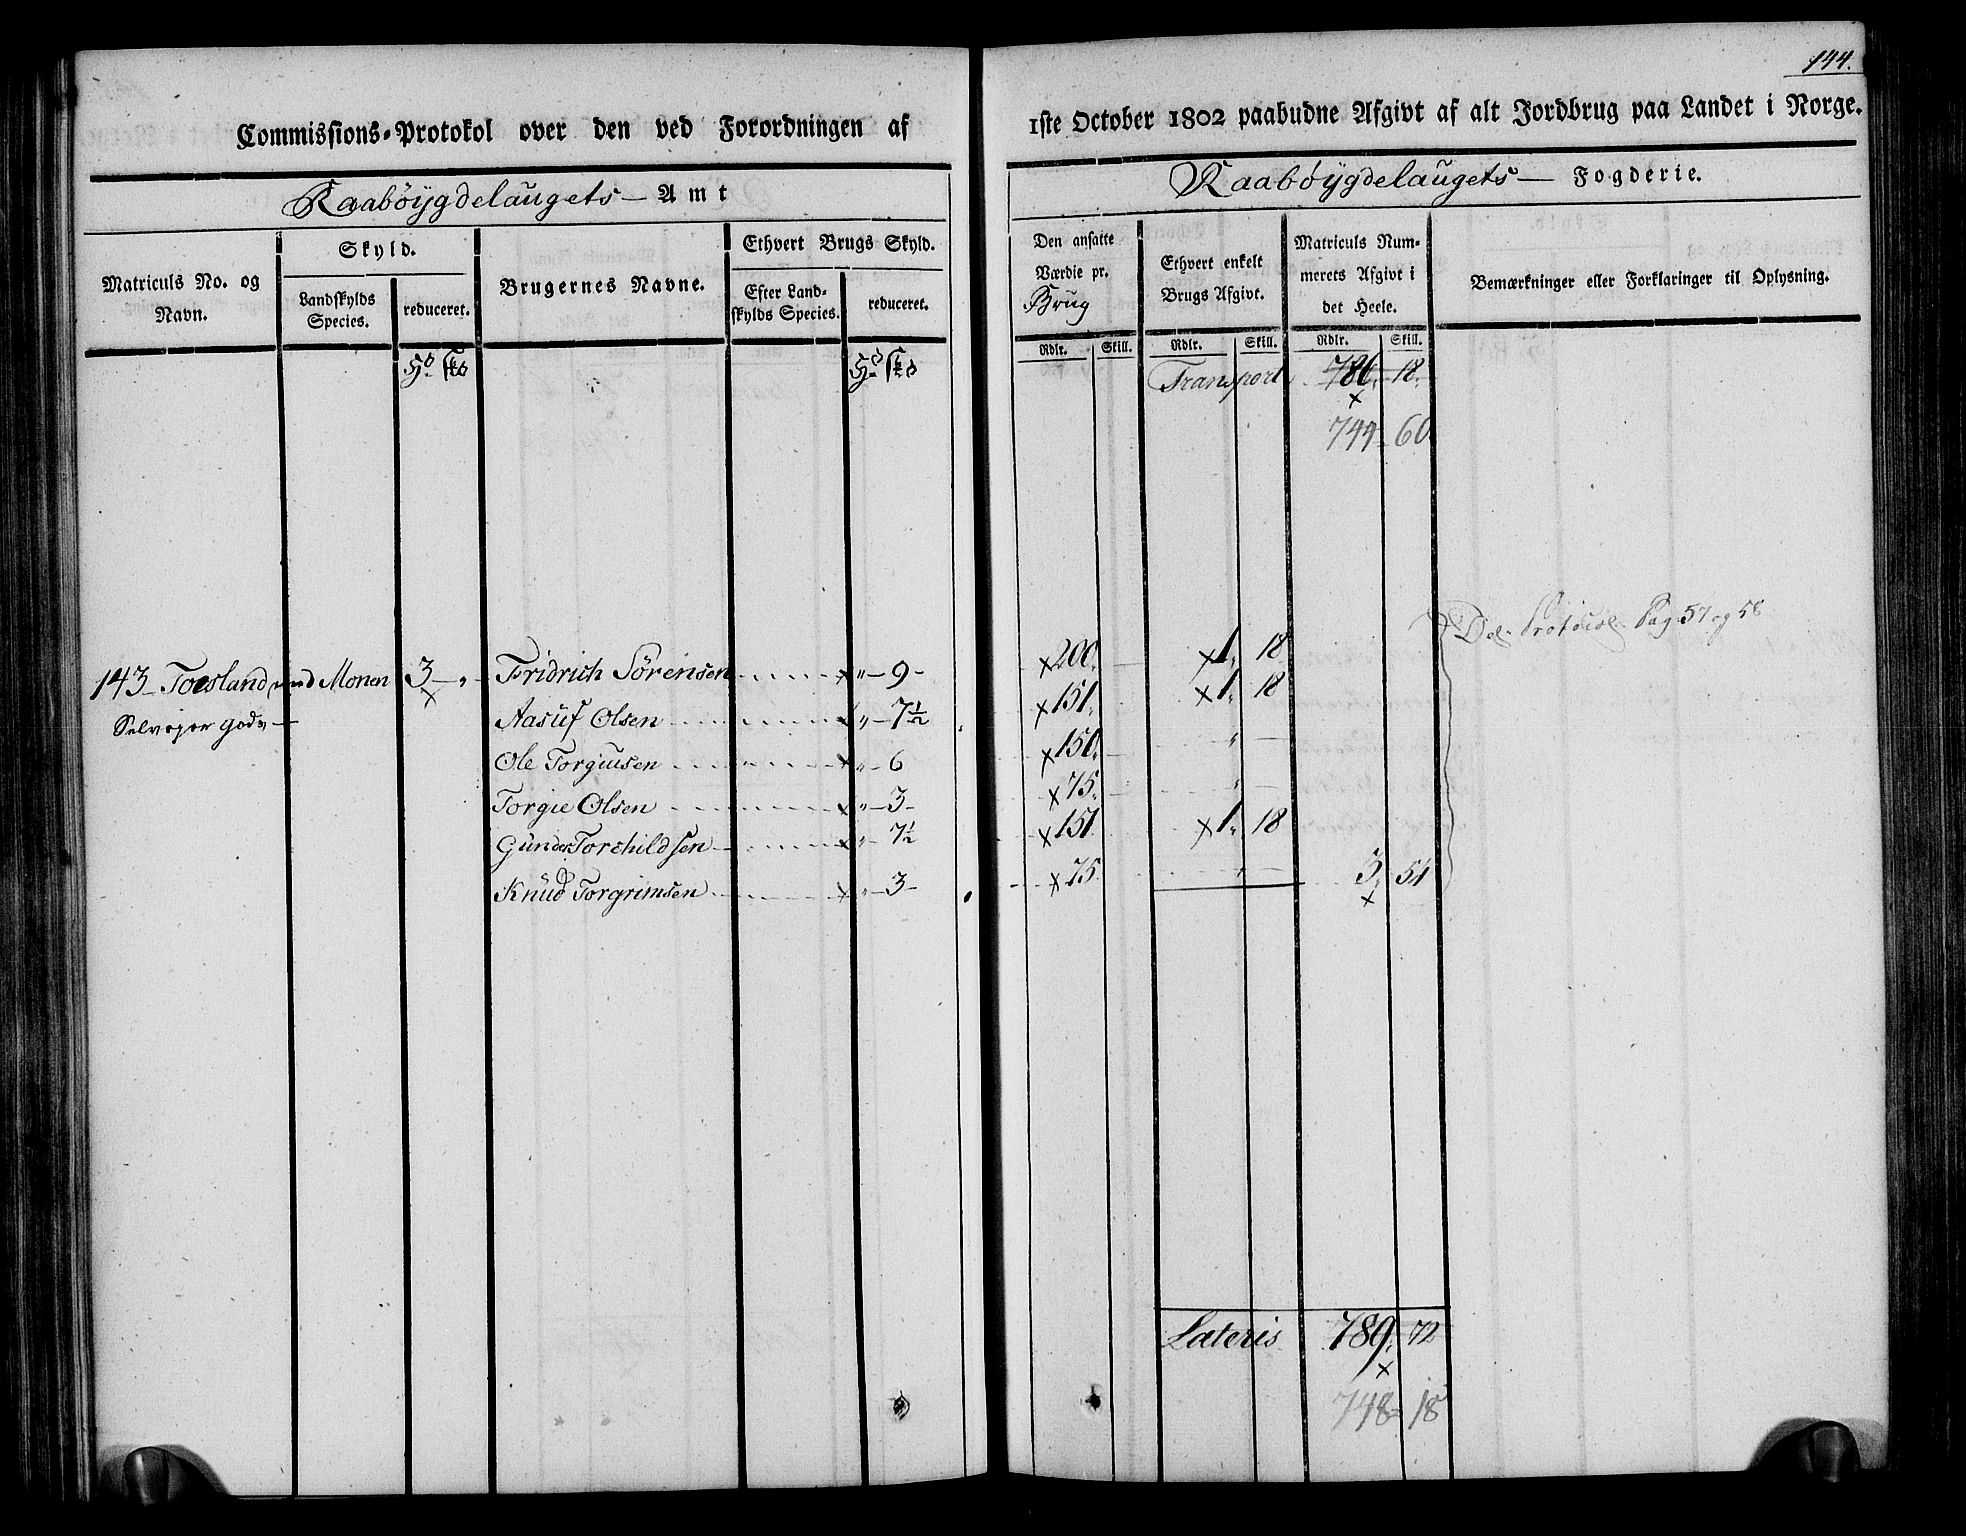 144.
Commissions-Protokol over den ved Forordningen af 1ste October 1802 paabudne Afgivt af alt Jordbrug paa Landet i Norge.
Raabøygdelaugets — Amt
Raabøygdelaugets — Fogderie.
Matriculs No. og Navn.
Skyld.
Landskylds Species.
reduceret.
Brugernes Navne.
Ethvert Brugs Skyld.
Efter Landskylds Species.
reduceret.
Den ansatte Værdie pr. Brug
Ethvert enkelt Brugs Afgivt.
Matriculs Nummerets Afgivt i det Heele.
Bemærkninger eller Forklaringer til Oplysning.
Rdlr. Skill. Rdlr. Skill. Rdlr. Skill.
Transport 786. 18.
744 60.
Del. Protocol Pag. 57 og 58
143 Toesland med Monen 3 — „ — Fridrich Sörensen „ — 9 — 200. 1. 18
Selveger gods — Aasüf Olsen „ — 7½ 151. 1. 18
Ole Torgiusen „ — 6 150. „ —
Torgie Olsen „ — 3 — 75. „ —
Gunder Torchildsen „ — 7½ 151 1. 18
Knüd Torgrimsen „ — 3 — 75. „ — 3. 54
Lateris 789. 72
748 18